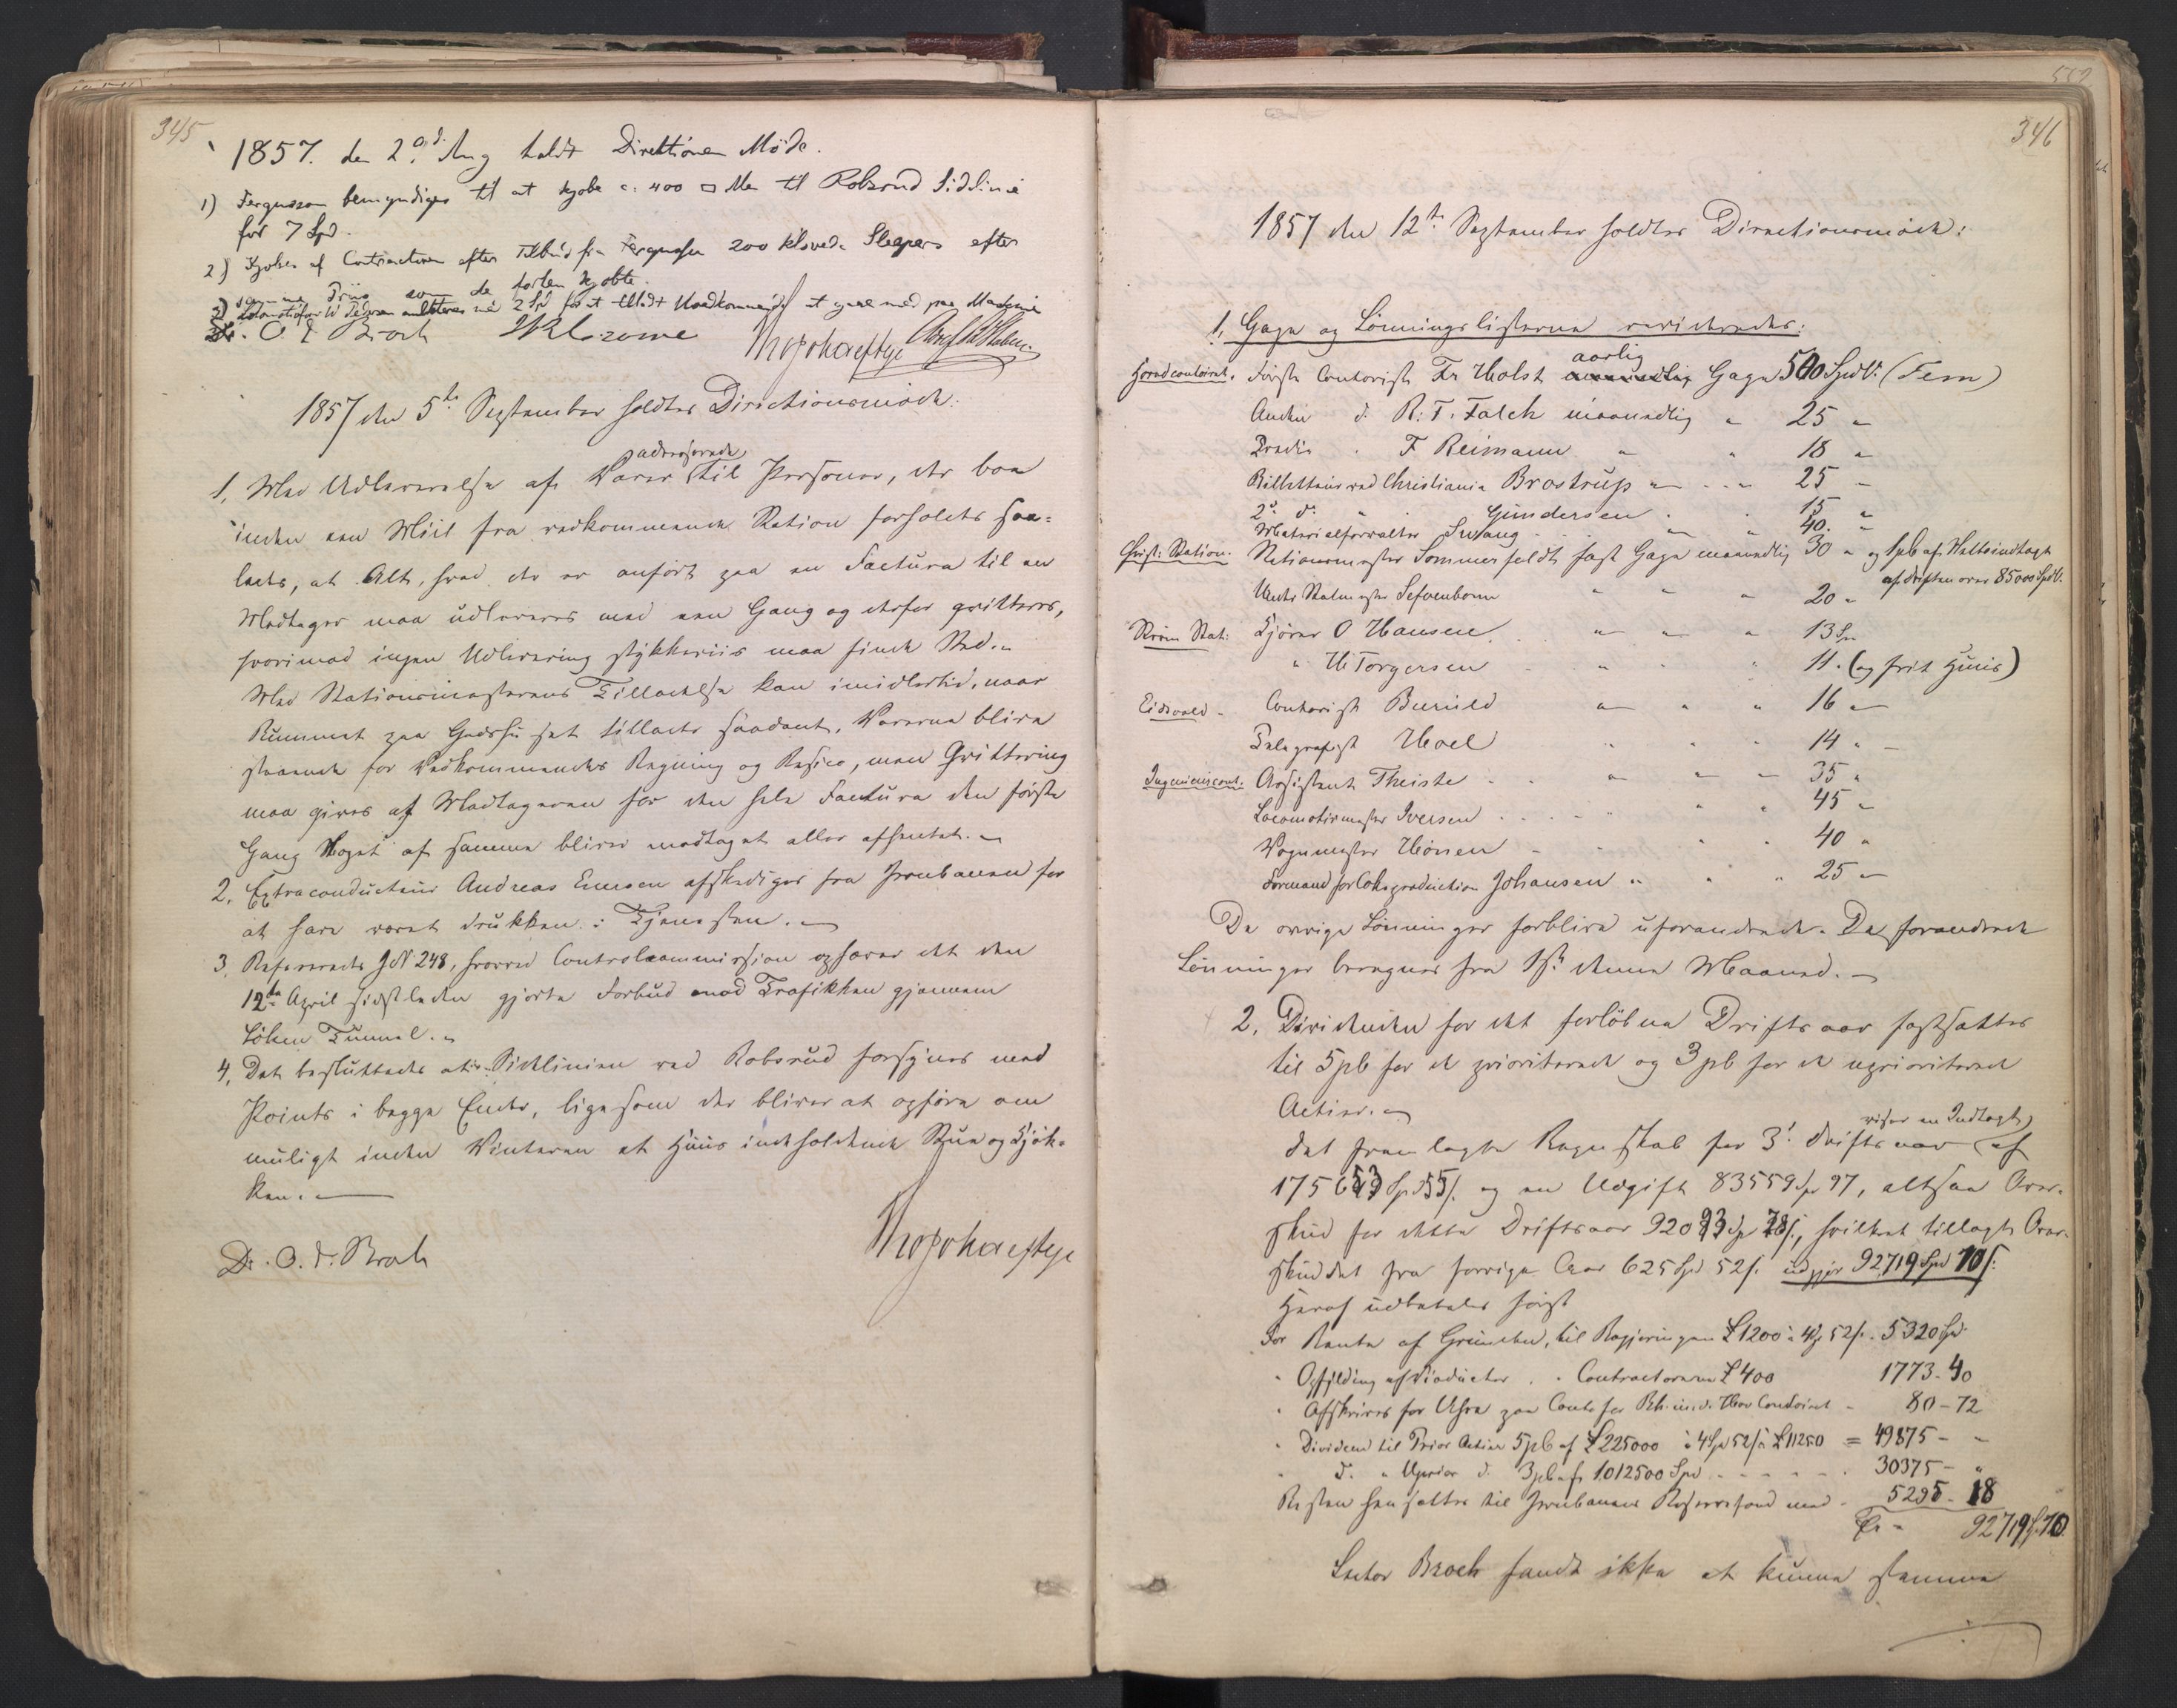 345
1857. den 29d. Aug holdt Direktionen Møde.
1) Fergusson bemyndiges til at kjøbe c. 400 □ Al. til Robsrud Sidelinie
for 7 Spd.
2) Kjøbes af Contracteren efter Tilbud fra Fergusson 200 kløvede Sleepers efter
samme Priis som de forhen kjøbte.
3) Pedersen mulkteres med 2 Spd for at tilladt Uvedkommende at gaae med paa Maskine
Dr. O. J. Broch
Thojohaeftye
1857 den 5te September holdtes Directionsmöde.
1, Ved Udleverelse af Varer adresserede til Personer, der boe
inden een Miil fra vedkommende Station forholdes saa-
ledes, at Alt, hvad der er anfört paa en Factura til en
Modtager maa udleveres med een Gang og derfor qvitteres,
hvorimod ingen Udlevering stykkeviis maa finde Sted.
Med Stationsmesterens Tilladelse kan imidlertid, naar
Rummet paa Godshuset tillader saadant, Varerne blive
staaende for Vedkommendes Regning og Risico, men Qvittering
maa gives af Modtageren for den hele Factura den förste
Gang Noget af samme bliver modtaget eller afhentet.
2, Extraconducteur Andreas Ensen afskediges fra Jernbanen for
at have været drukken i Tjenesten.
3, Refereredes J.N 248, hvorved Controlcommission ophæver det den
12te April sidstleden gjorte Forbud mod Trafikken gjennem
Löken Tunnel.
4, Det besluttedes at Sidelinien ved Robsrud forsynes med
Points i begge Ender, ligesom der bliver at opföre om
muligt inden Vinteren et Huus indeholdende Stue og Kjök-
ken.
Dr. O. J. Broch
Thojohaeftye
346
1857 den 12te September holdtes Directionsmöde:
1, Gage og Lönningslisterne revideredes:
Hovedcontoiret. Förste Contorist Fr Holst aarlig Gage 500 Spdl. (Fem)
Anden d. R. F. Falch maanedlig " 25 "
Tredie " F Reimann " " 18 "
Billetteur ved Christiania Brostrup " " 25 "
2d d. " Gundersen " " 15 "
Materialforvalter Svang " " 40. "
Christ. Station. Stationsmester Sommerfeldt fast Gage maanedlig 30 " og 1 pCt af Nettoindtægt
af Driften over 85000 Spdl.
Under Stationsmester " " " 20 "
Ström. Stat: Kjörer O Hansen " " " 13 Sp
" H. Torgersen " " " 11. (og frit Huus)
Eidsvold - Contorist Buruld " " " 16 "
Telegrafist Hoel " " " 14 "
Ingenieurcont. Assistent Theiste " " " 35 "
Locomotivmester Iversen " " 45 "
Vognmester Hönsen " " 40 "
Formand for Cokeproduction Johansen " " " 25 "
De övrige Lönninger forblive uforandrede. De forandrede
Lönninger beregnes fra 1ste denne Maaned.
2, Dividenden for det forlöbne Driftsaar fastsattes
til 5 pCt for de prioriterede og 3 pCt for de uprioriterede
Actier.
Det fremlagte Regnskab for 3die Driftsaar viser en Indtægt af
175653 Spd 55 s. og en Udgift 83559 Sp 97, altsaa Over-
skud for dette Driftsaar 92093 Sp 78 s., hvilket tillagt Over-
skuddet fra forrige Aar 625 Spd 52 s. udgjör 92719 Spd 10 s.
Heraf udbetales först
For Rente af Grunden, til Regjeringen £1200 à 4 Sp 52 s. 5320 Spd
" Opfyldning af Viaducter " Contractorerne £400 1773-40
" Afskrives for Uhre paa Conto for Hoved Contoiret 80-72
" Dividend til Prior Actier 5 pCt af £225000 à 4 Sp 52 s £11250 = 49875 - "
" d. " Uprior d. 3 pCt af 1012500 Spd 30375 - "
Resten hensættes til Jernbanens Reservefond med 5295-18
92719 Sp 10
Lector Broch fandt ikke at kunne stemme